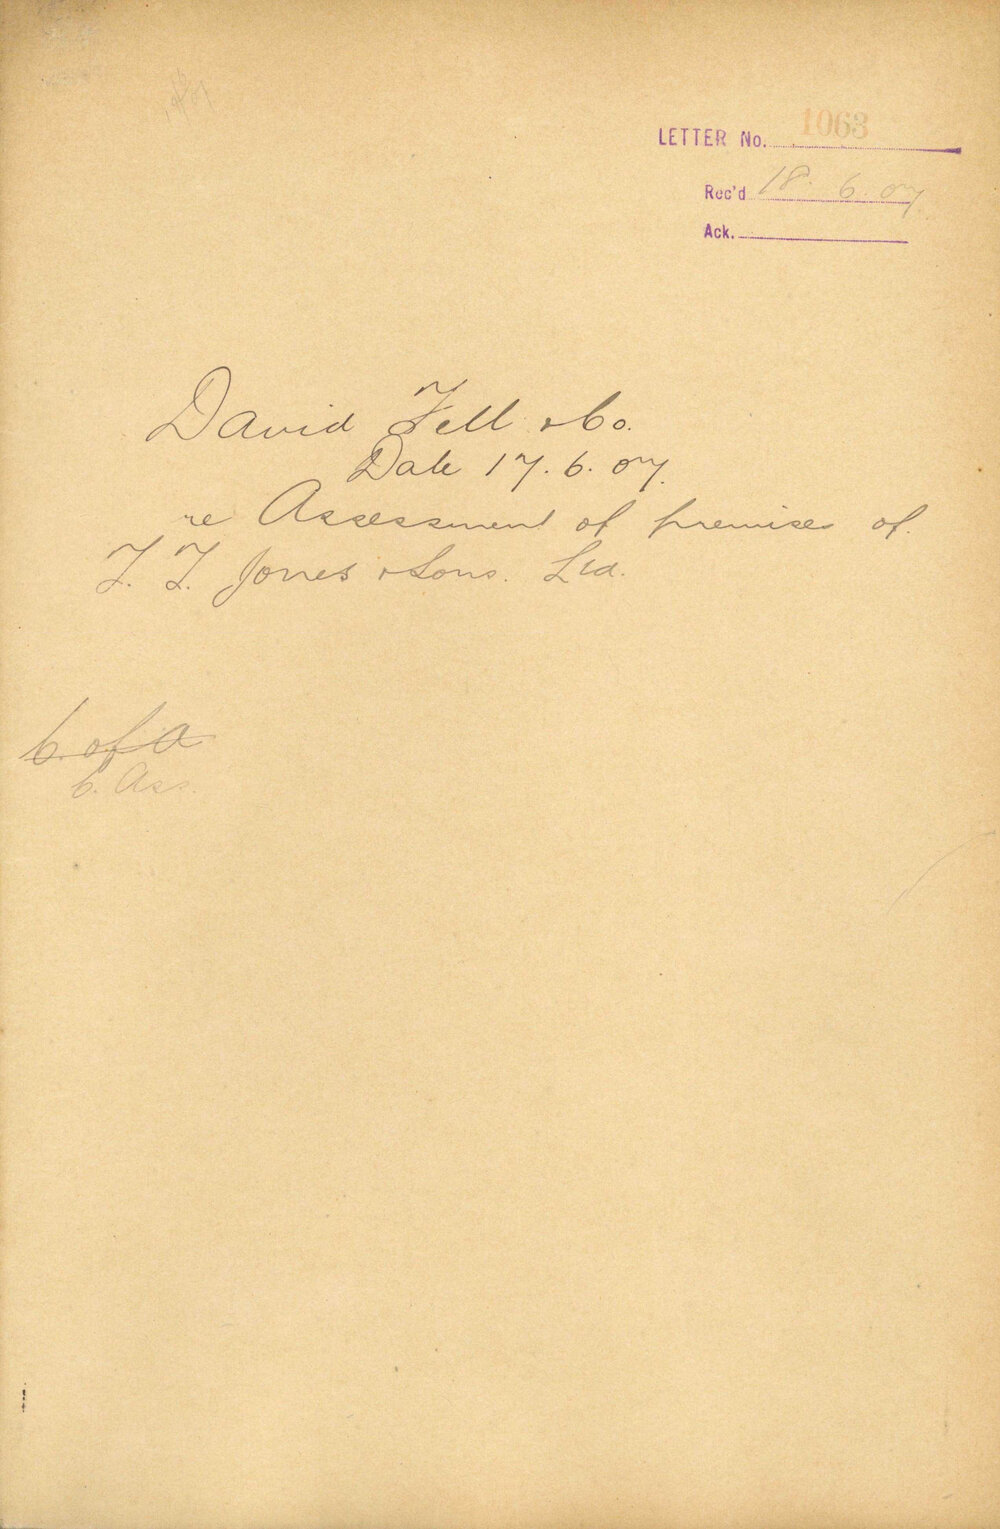 LETTER No. 1063
Rec'd 18. 6. 07
Ack.
David Fell & Co.
Date 17. 6. 07.
re Assessment of premises of.
T. T. Jones & Sons. Ltd.
C. of A
C. Ass.